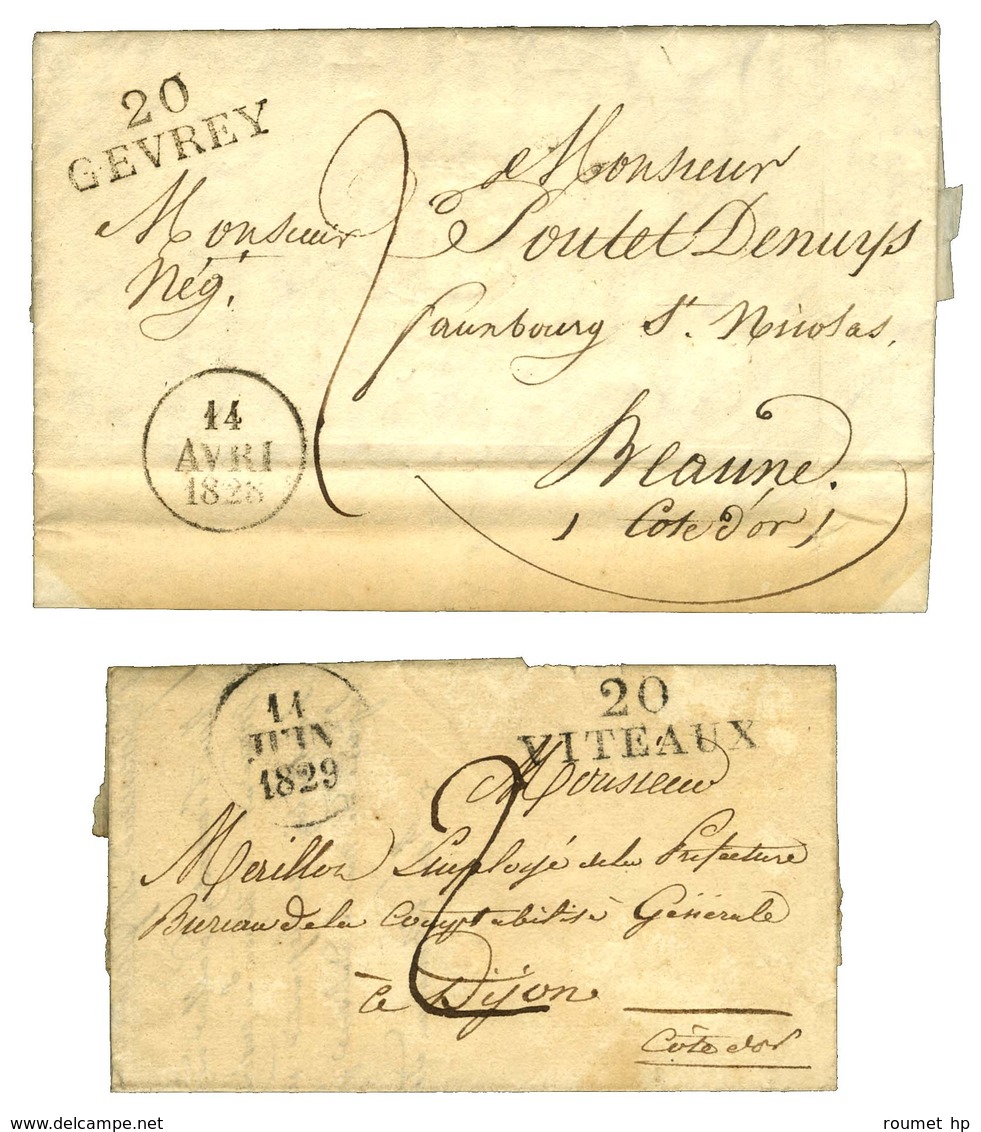 20
GEVREY
Monsieur
Monsieur
Nég.t
Poulet Denuys
faunbourg St. Nicolas,
14
AVRI
1828
Beaune.
Cote d'or
2
11
JUIN
1829
20
VITEAUX
Monsieur
Merillon Employé de la Préfecture
Bureau de la Comptabilité Générale
à Dijon
Côte d'or
2
www.delcampe.net
roumet hp